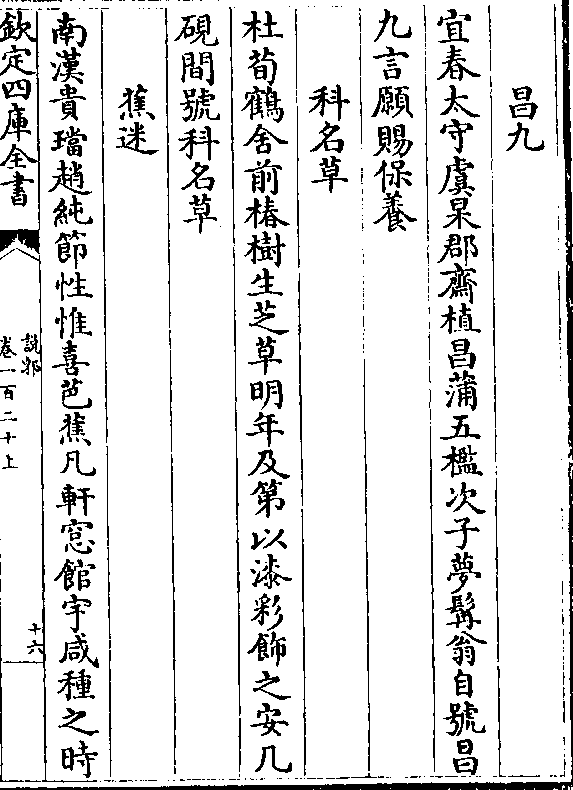 昌九
宜春太守虞杲郡齋植昌蒲五檻次子夢髯翁自號昌
九言願賜保養
科名草
杜荀鶴舍前椿樹生芝草明年及第以漆彩飾之安几
硯間號科名草
蕉迷
南漢貴璫趙純節性惟喜芭蕉凡軒窓館宇咸種之時
欽定四庫全書
說郛
卷一百二十上
十六